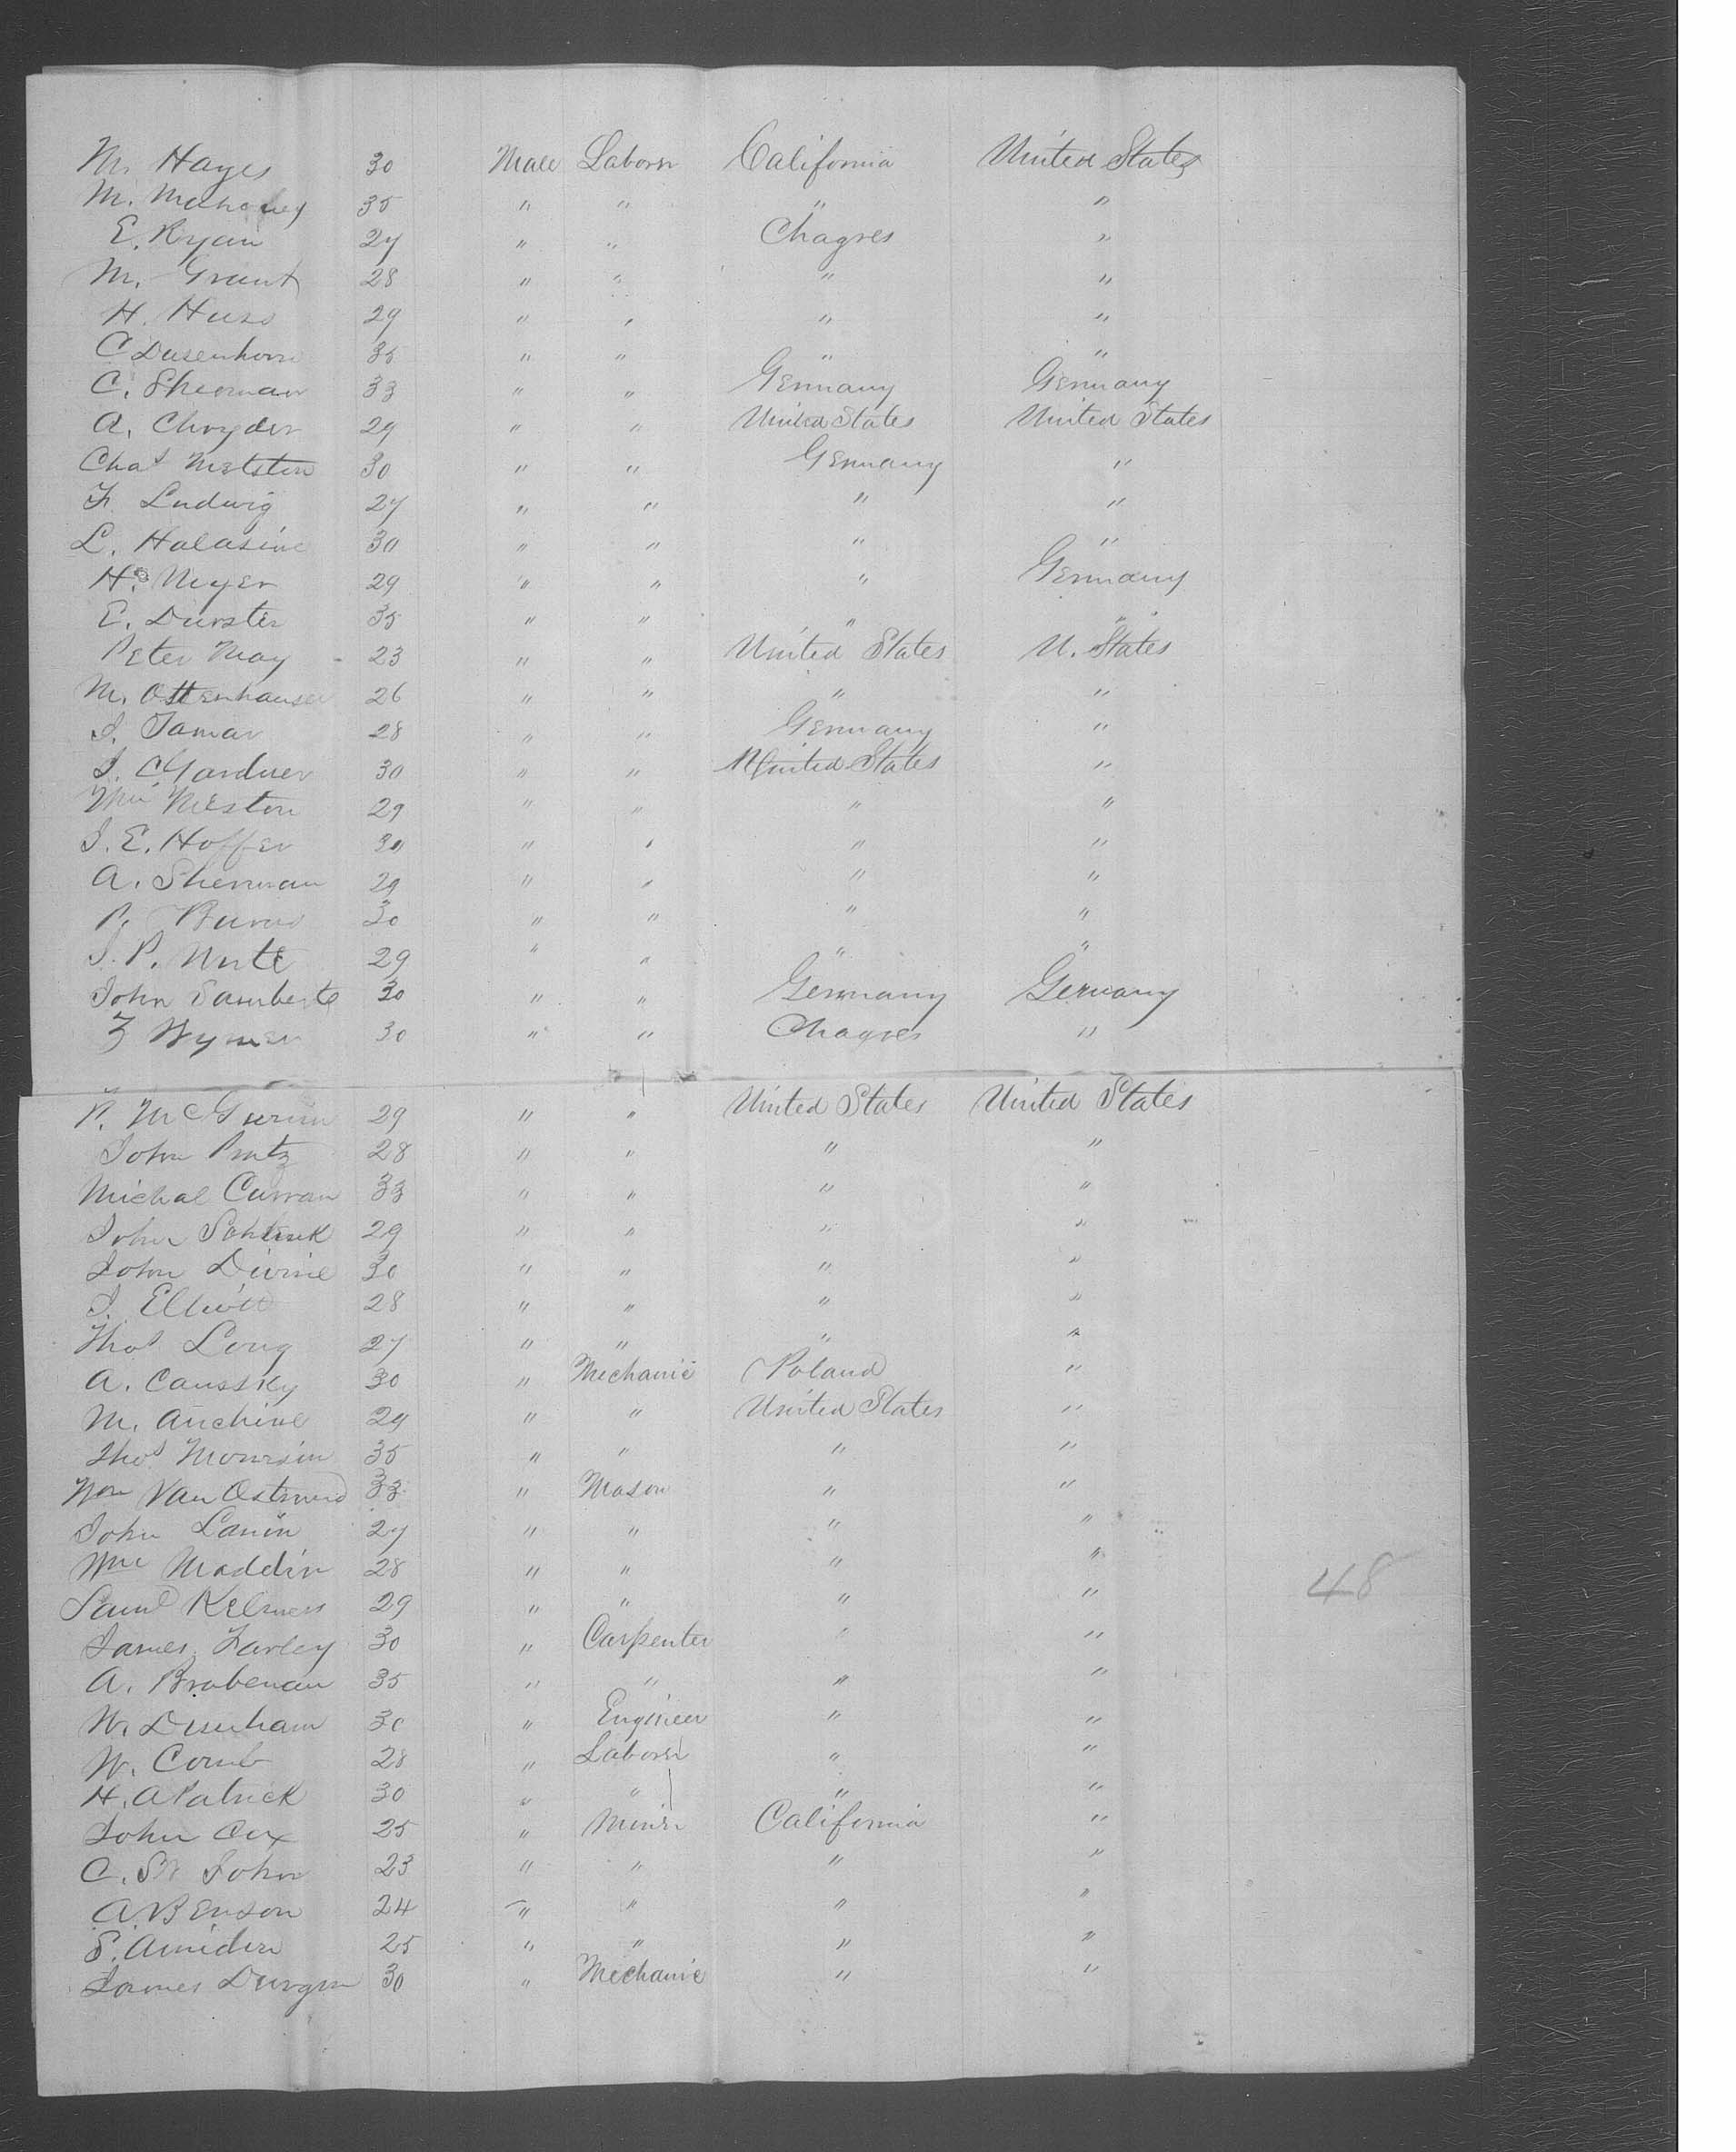 M. Hayes 30 Male Laborer California United States
M. Mahoney 35 " " " "
E. Ryan 27 " " Chagres "
M. Grant 28 " " " "
H. Huss 29 " " " "
C Dusenhorn 35 " " " "
C. Sherman 33 " " Germany Germany
A. Chryder 29 " " United States United States
Chas Metsten 30 " " Germany "
F. Ludwig 27 " " " "
L. Halasine 30 " " " "
H. Meyer 29 " " " Germany
E. Durster 35 " " " "
Peter May - 23 " " United States U. States
M. Ottenhauser 26 " " " "
J. Tamar 28 " " Germany "
J. C Gardner 30 " " United States "
Wm Meston 29 " " " "
J. E. Hoffer 30 " " " "
A. Sherman 29 " " " "
P. Burns 30 " " " "
J. P. Nute 29 " " " "
John Samberte 30 " " Germany Germany
Z Wymer 30 " " Chagres "
P. McGurin 29 " " United States United States
John Prutz 28 " " " "
Michal Curran 33 " " " "
John Schenk 29 " " " "
John Divine 30 " " " "
J. Elliott 28 " " " "
Thos Long 27 " " " "
A. Caussky 30 " Mechanic Poland "
M. Auchine 29 " " United States "
Thos Monrsin 35 " " " "
Wm Van Ostrund 33 " Mason " "
John Lanin 27 " " " "
Wm Maddin 28 " " " "
Saml Kelmers 29 " " " " 48
James Farley 30 " Carpenter " "
A. Brabenan 35 " " " "
W. Denham 30 " Engineer " "
W. Comb 28 " Laborer " "
H. A Patrick 30 " " " "
John Cox 25 " Miner California "
C. St John 23 " " " "
A. Benson 24 " " " "
S. Amiden 25 " " " "
James Durgin 30 " Mechanic " "